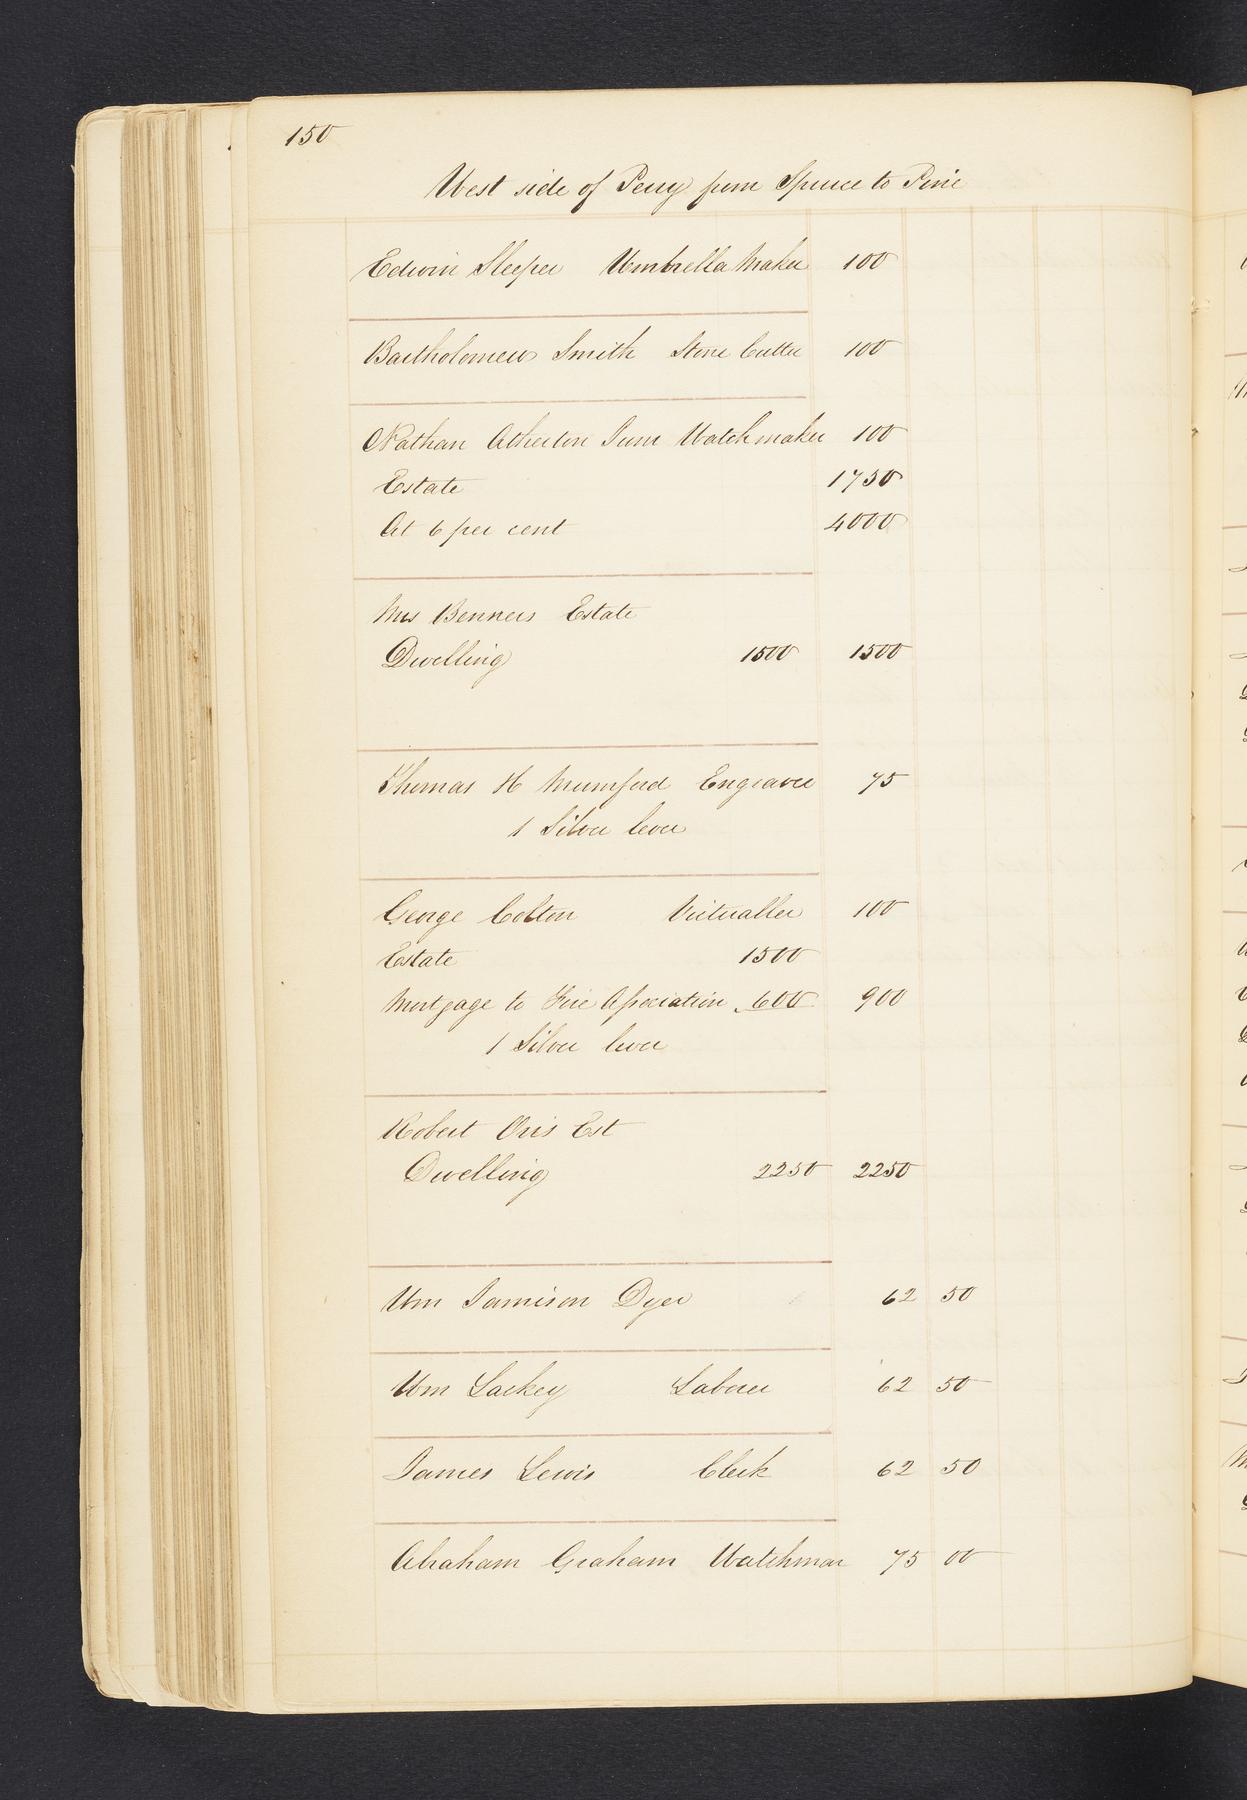 150
West side of Perry from Spruce to Pine
Edwin Sleeper Umbrella Maker 100
Bartholomew Smith Stone Cutter 100
Nathan Atherton Junr Watchmaker 100
Estate 1750
At 6 per cent 4000
Mrs Benners Estate
Dwelling 1500 1500
Thomas H Mumford Engraver 75
1 Silver lever
George Colton Victualler 100
Estate 1500
Mortgage to Fire Association 600 900
1 Silver lever
Robert Orrs Est
Dwelling 2250 2250
Wm Jamison Dyer 62 50
Wm Lackey Laborer 62 50
James Lewis Clerk 62 50
Abraham Graham Watchman 75 00